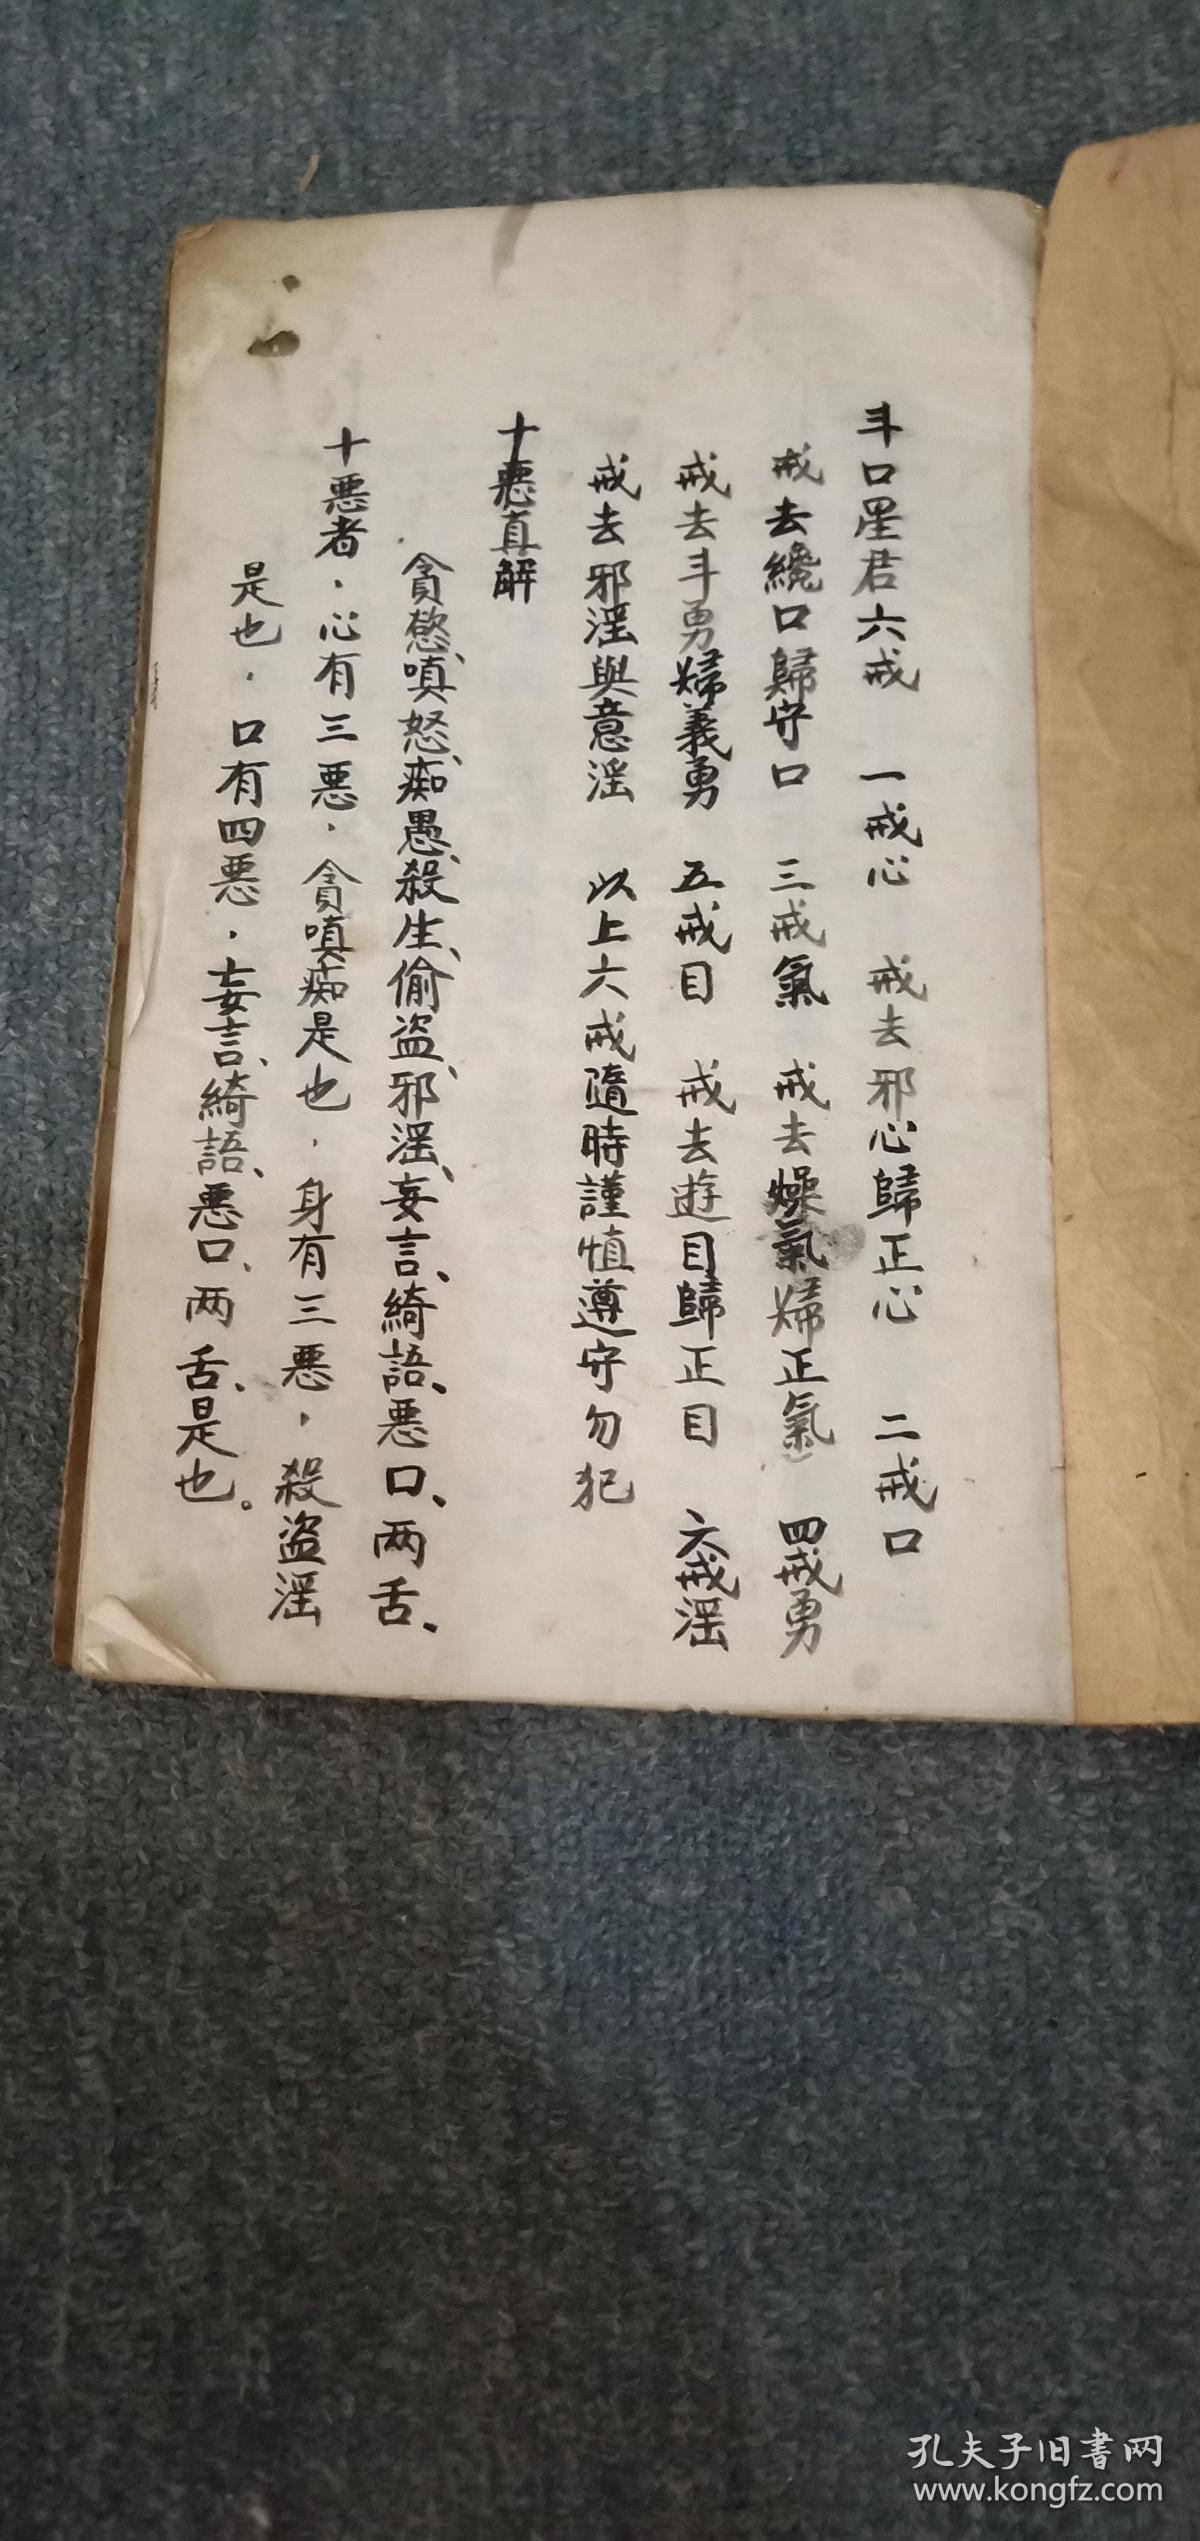 斗口星君六戒　一戒心　戒去邪心歸正心　二戒口
戒去纔口歸守口　三戒氣　戒去燥氣歸正氣　四戒勇
戒去斗勇歸義勇　五戒目　戒去遊目歸正目　六戒淫
戒去邪淫與意淫　以上六戒隨時謹慎遵守勿犯
十惡真解
貪慾、嗔怒、痴愚、殺生、偷盗、邪淫、妄言、綺語、悪口、两舌、
十悪者，心有三悪，貪嗔痴是也，身有三悪，殺盗淫
是也，口有四悪，妄言、綺語、悪口、两舌、是也。
孔夫子旧書网
www.kongfz.com